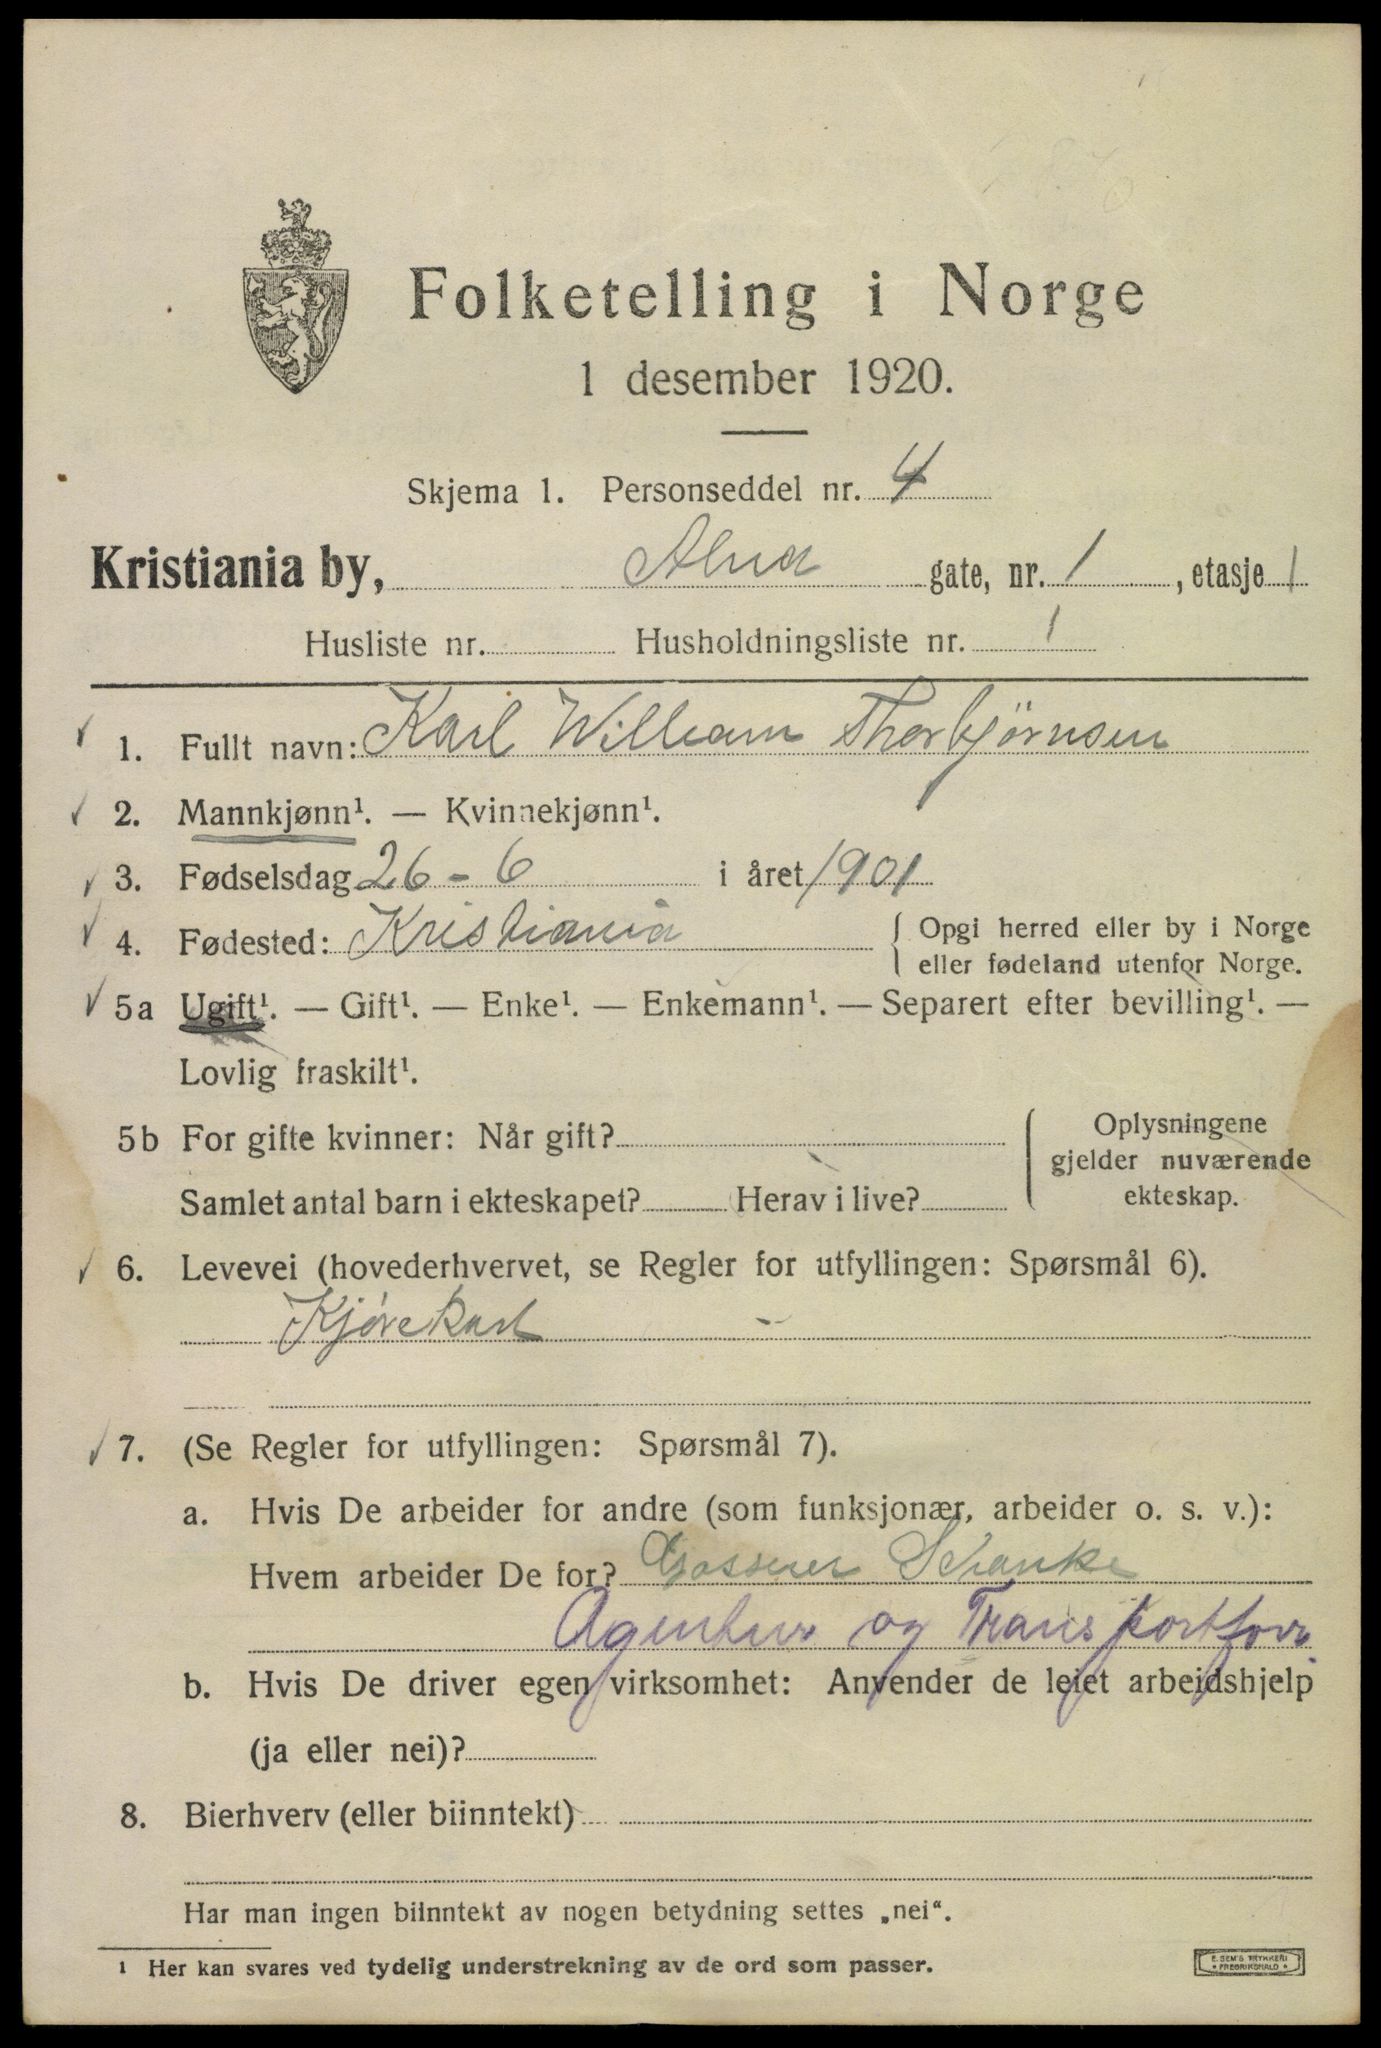 Folketelling i Norge
1 desember 1920.
Skjema 1. Personseddel nr. 4
Kristiania by, Alna gate, nr. 1, etasje 1
Husliste nr. Husholdningsliste nr. 1
1. Fullt navn: Karl William Thorbjørnsen
2. Mannkjønn¹. — Kvinnekjønn¹.
3. Fødselsdag 26 - 6 i året 1901
4. Fødested: Kristiania { Opgi herred eller by i Norge
eller fødeland utenfor Norge.
5a Ugift¹. — Gift¹. — Enke¹. — Enkemann¹. — Separert efter bevilling¹. —
Lovlig fraskilt¹.
5b For gifte kvinner: Når gift?
Samlet antal barn i ekteskapet? Herav i live?
{ Oplysningene
gjelder nuværende
ekteskap.
6. Levevei (hovederhvervet, se Regler for utfyllingen: Spørsmål 6).
Kjørekarl
7. (Se Regler for utfyllingen: Spørsmål 7).
a. Hvis De arbeider for andre (som funksjonær, arbeider o. s. v.):
Hvem arbeider De for? Grosserer Schanke
Agentur og Transportforr.
b. Hvis De driver egen virksomhet: Anvender de leiet arbeidshjelp
(ja eller nei)?
8. Bierhverv (eller biinntekt)
Har man ingen biinntekt av nogen betydning settes „nei“.
1 Her kan svares ved tydelig understrekning av de ord som passer.
E. SEM'S TRYKKERI
* FREDRIKSHALD *